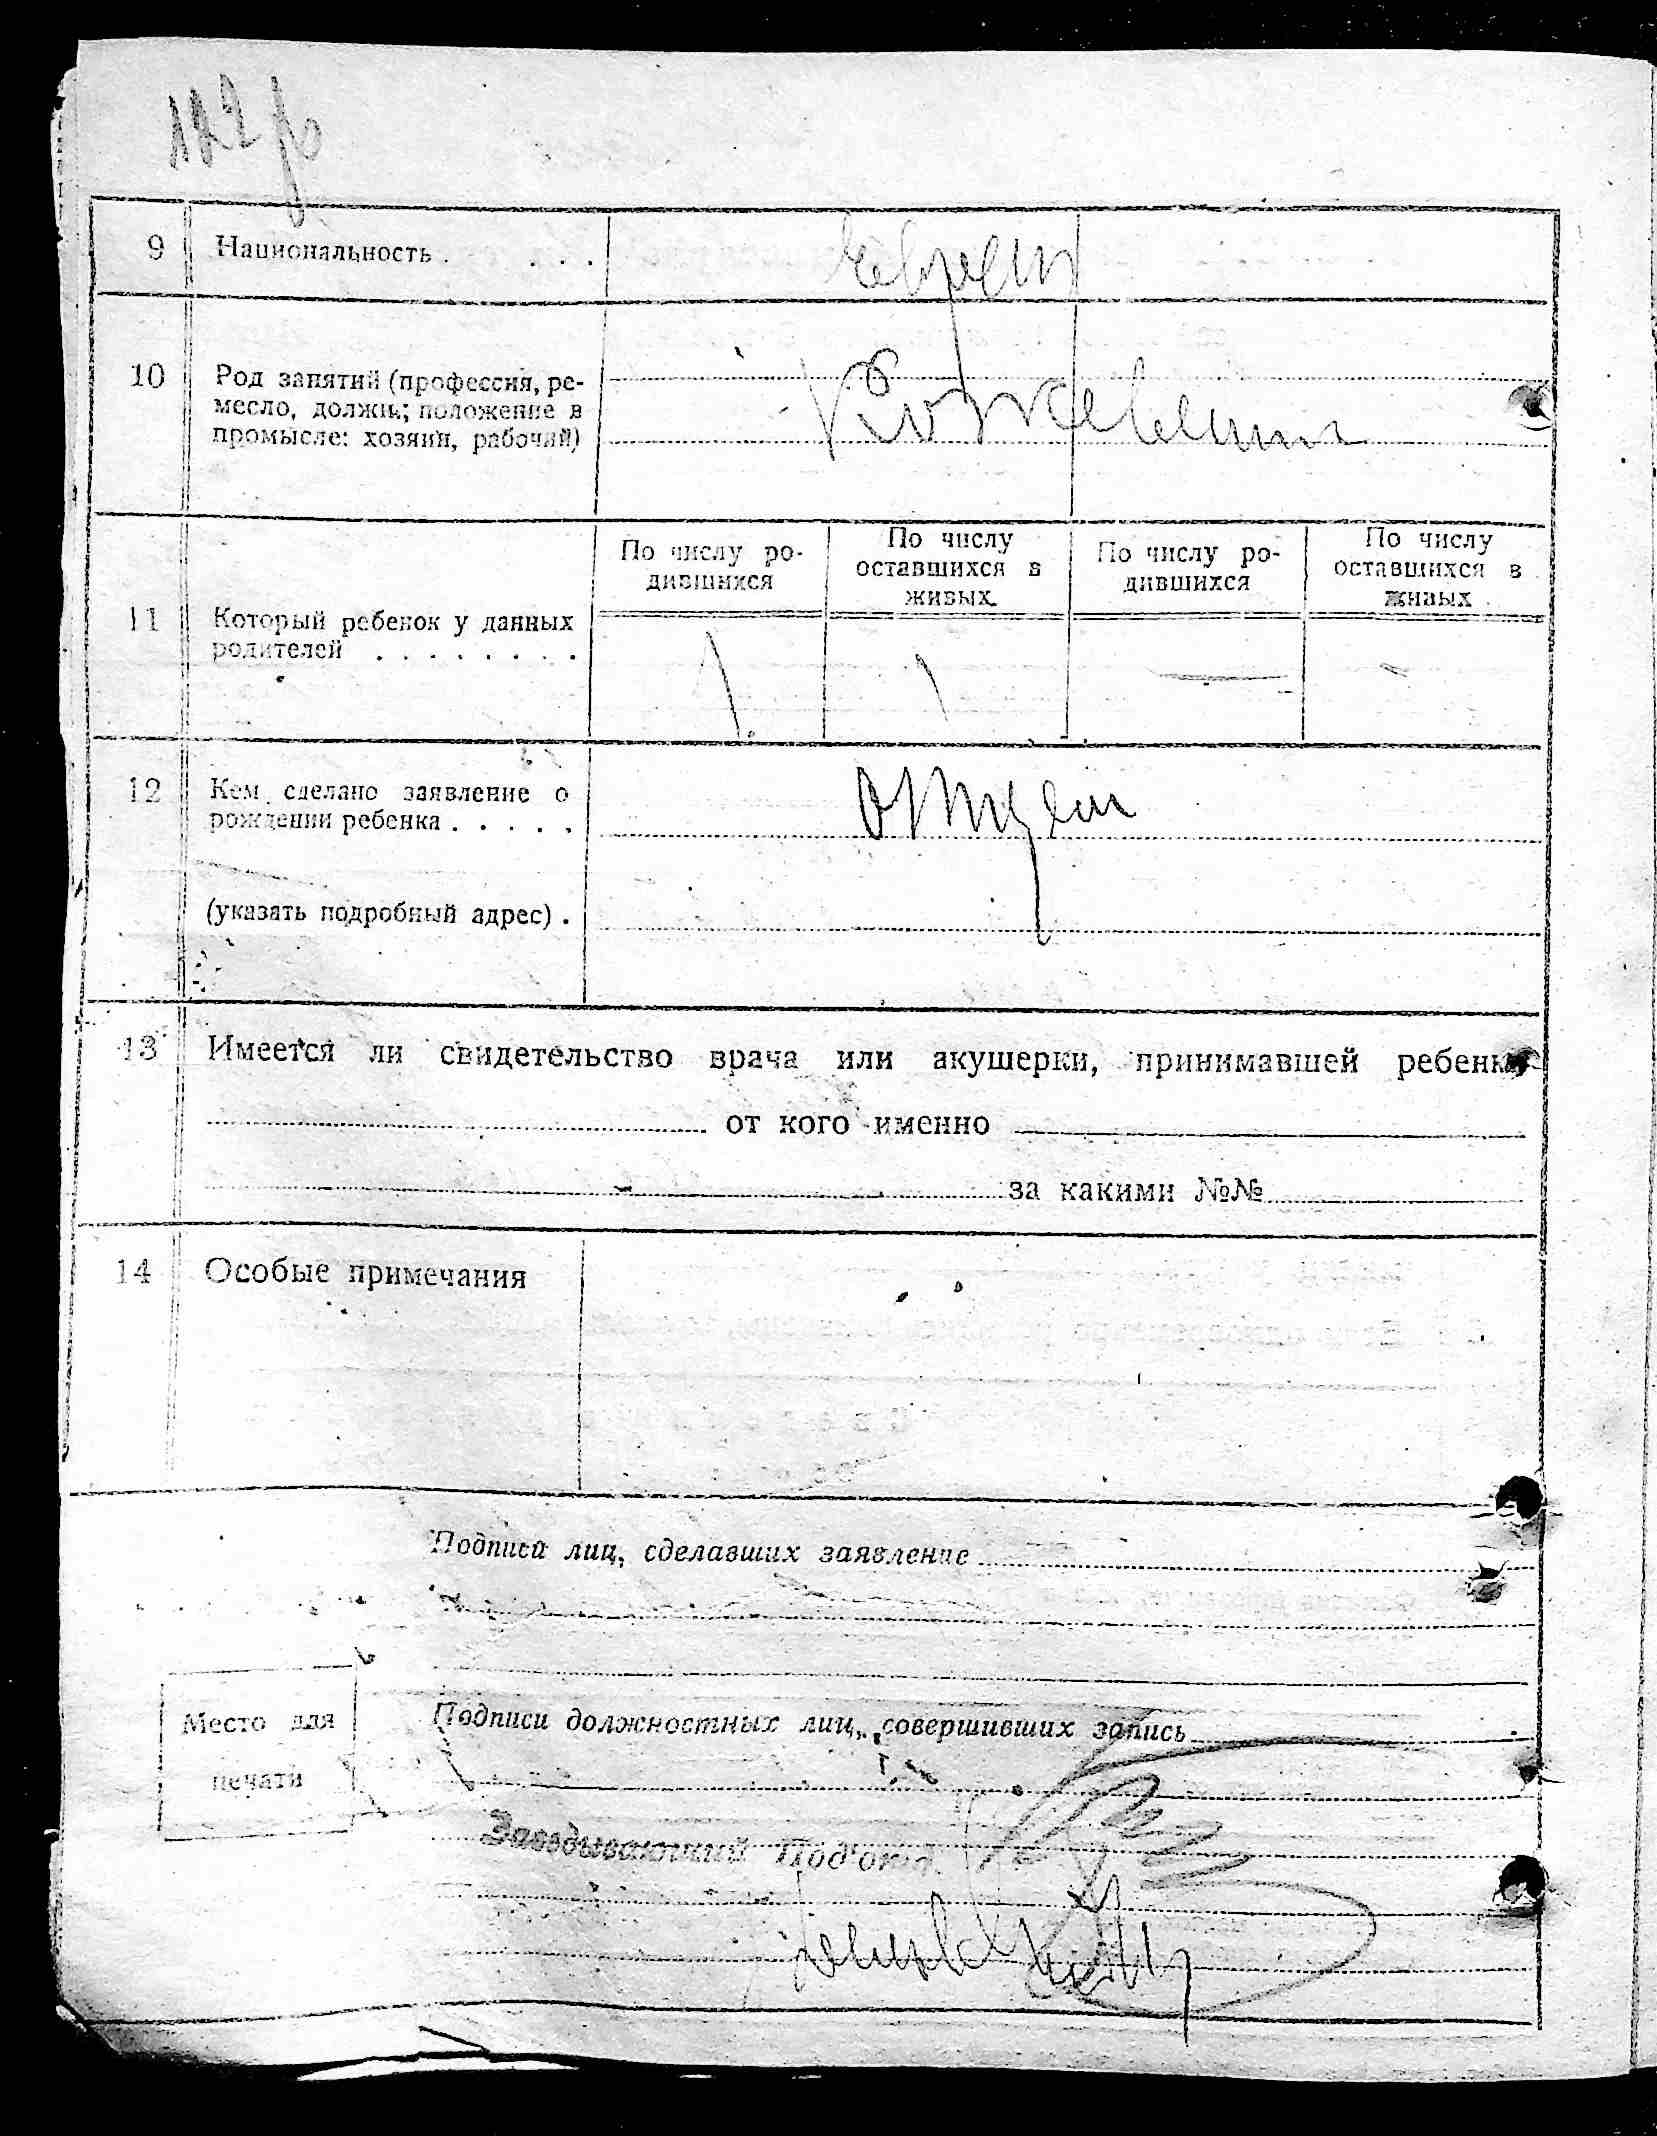 9 Национальность . . . . евреи
10 Род занятий (профессия, ре-
месло, должн.; положение в
промысле: хозяин, рабочий)
Кожевенник
По числу ро-
дившихся
По числу
оставшихся в
живых.
По числу ро-
дившихся
По числу
оставшихся в
живых
11 Который ребенок у данных
родителей . . . . . . . .
1. 1 — -
12 Кем сделано заявление о
рождении ребенка . . . . .
отцем
(указать подробный адрес) .
13 Имеется ли свидетельство врача или акушерки, принимавшей ребенка
от кого именно
за какими №№
14 Особые примечания
Подписи лиц, сделавших заявление
Место для
печати
Подписи должностных лиц, совершивших запись
Заведывающий Под'отд.